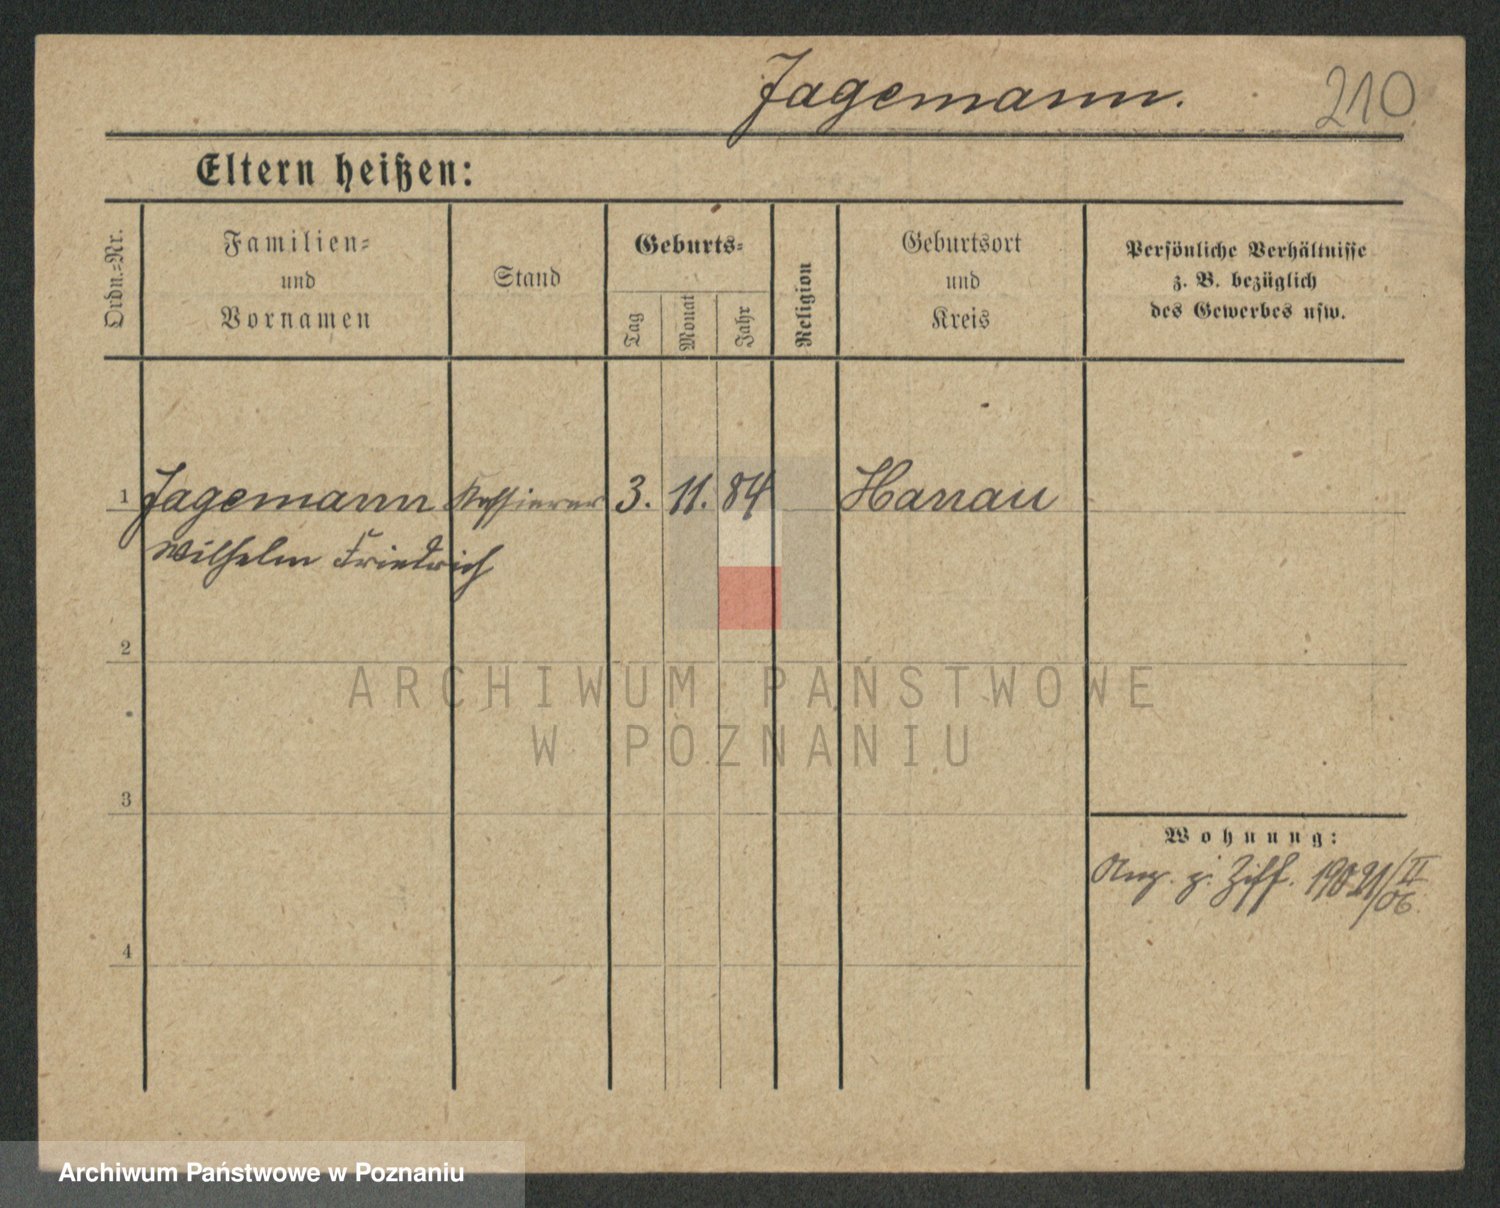 Jagemann.
210
Eltern heißen:
Ordn.=Nr.
Familien=
und
Vornamen
Stand
Geburts=
Tag
Monat
Jahr
Religion
Geburtsort
und
Kreis
Persönliche Verhältnisse
z. B. bezüglich
des Gewerbes usw.
1 Jagemann Kassierer 3. 11. 84 Hanau
Wilhelm Friedrich
2
ARCHIWUM PAŃSTWOWE
W POZNANIU
3
Wohnung:
z. Ziff. II
06
4
Archiwum Państwowe w Poznaniu